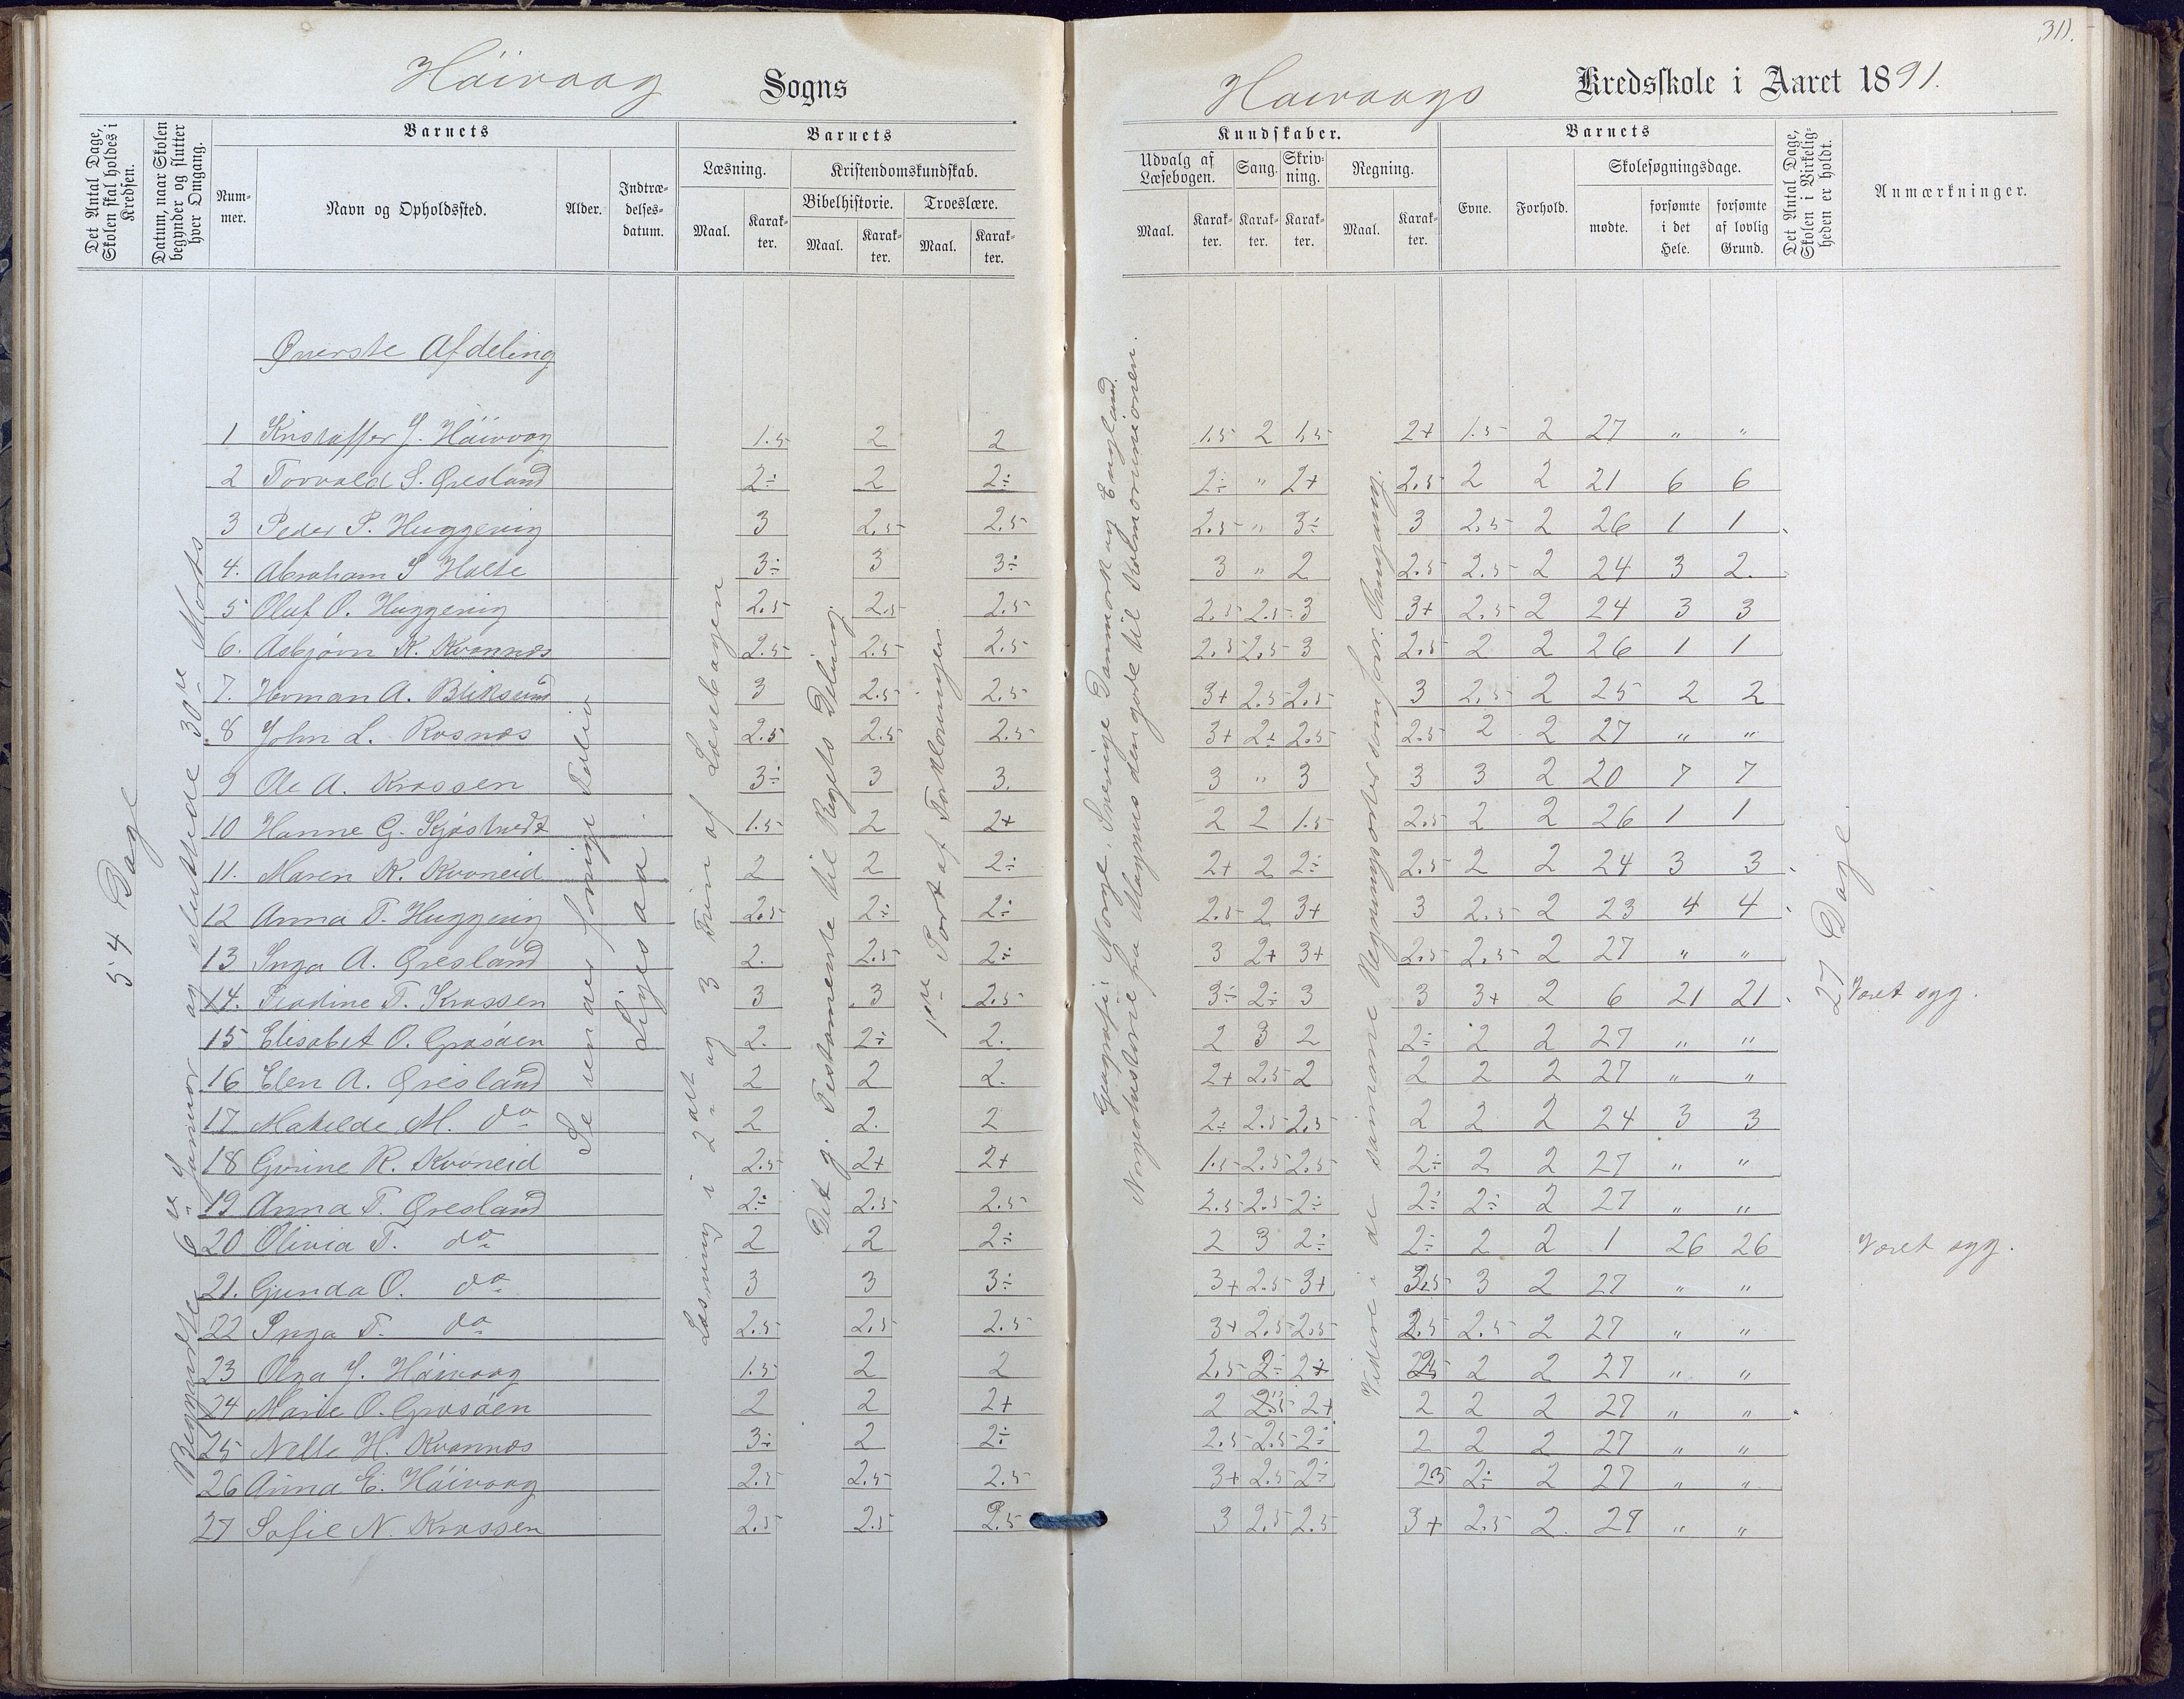 Håivaag Sogns
Haivaags Kredsskole i Aaret 1891.
311.
Det Antal Dage, Skolen skal holdes i Kredsen.
Datum, naar Skolen begynder og slutter hver Omgang.
Barnets
Num-mer.
Navn og Opholdssted.
Alder.
Indtræ-delses-datum.
Barnets
Læsning.
Maal.
Karak-ter.
Kristendomskundskab.
Bibelhistorie.
Maal.
Karak-ter.
Troeslære.
Maal.
Karak-ter.
Kundskaber.
Udvalg af Læsebogen.
Maal.
Karak-ter.
Sang.
Karak-ter.
Skriv-ning.
Karak-ter.
Regning.
Maal.
Karak-ter.
Barnets
Evne.
Forhold.
Skolesøgningsdage.
mødte.
forsømte i det Hele.
forsømte af lovlig Grund.
Det Antal Dage, Skolen i Virkelig-heden er holdt.
Anmærkninger.
54 Dage
Begyndte 6te Januar og sluttede 30te Marts
Øverste Afdeling
Se venader forrige Folio
Ligesaa
Læsning i 2det og 3 Trin af Læsebogen
Det g. Testamente til Rigets Deling
1ste Part af Forklaringen
Geografi: Norge, Sverige Danmark og England.
Norgeshistorie fra Magnus den gode til Kalmarunionen.
Videre i de samme Regningsarter som forr. Omgang.
27 Dage
1 Kristoffer J. Håivaag 1.5 2 2 1.5 2 1.5 2+ 1.5 2 27 " "
2 Torvald S. Øresland 2÷ 2 2÷ 2÷ " 2+ 2.5 2 2 21 6 6
3 Peder P. Huggevig 3 2.5 2.5 2.5 " 3÷ 3 2.5 2 26 1 1
4. Abraham S Holte 3÷ 3 3÷ 3 " 2 2.5 2.5 2 24 3 2.
5 Oluf O. Huggevig 2.5 2.5 2.5 2.5 2.5 3 3+ 2.5 2 24 3 3
6. Asbjørn K. Kvannes 2.5 2.5 2.5 2.5 2.5 3 2.5 2 2 26 1 1
7. Herman A. Bliksund 3 2.5 2.5 3+ 2.5 2.5 3 2.5 2 25 2 2
8 John L. Rosnæs 2.5 2.5 2.5 3+ 2÷ 2.5 2.5 2 2 27 " "
9 Ole A. Krossen 3÷ 3 3. 3 " 3 3 3 2 20 7 7
10 Hanne G. Kjøstvedt 1.5 2 2+ 2 2 1.5 2.5 2 2 26 1 1
11. Maren K. Kvaneid 2 2 2÷ 2+ 2 2÷ 2.5 2 2 24 3 3
12 Anna T. Huggevig 2.5 2÷ 2÷ 2.5 2 3+ 3 2.5 2 23 4 4
13 Inga A. Øresland 2. 2.5 2÷ 3 2+ 3+ 2.5 2.5 2 27 " "
14. Teodine T. Krossen 3 3 2.5 3÷ 2÷ 3 3 3+ 2 6 21 21 Været syg.
15 Elisabet O. Grøsåen 2. 2÷ 2. 2 3 2 2÷ 2 2 27 " "
16 Elen A. Øresland 2 2 2. 2+ 2.5 2 2 2 2 27 " "
17 Matilde M. do 2 2. 2 2÷ 2.5 2.5 2 2 2 24 3 3
18 Gurine R. Kvaneid 2.5 2+ 2+ 1.5 2.5 2.5 2÷ 2 2 27 " "
19 Anna T. Øresland 2÷ 2.5 2.5 2.5 2.5 2÷ 2÷ 2÷ 2 27 " "
20 Olivia T. do 2 2 2÷ 2 3 2÷ 2÷ 2 2 1 26 26 Været syg.
21. Gunda O. do 3 3 3÷ 3+ 2.5 3+ 3.5 3 2 27 " "
22 Inga T. do 2.5 2.5 2.5 3+ 2.5 2.5 2.5 2.5 2 27 " "
23 Olga J. Håivaag 1.5 2 2 2.5 2÷ 2+ 2.5 2 2 27 " "
24 Marie O. Grøsåen 2 2 2+ 2 2.5 2+ 2 2 2 27 " "
25 Nille H. Kvannes 3÷ 2 2÷ 2.5 2.5 2÷ 2 2 2 27 " "
26 Anna E. Håivaag 2.5 2.5 2.5 3+ 2.5 2÷ 2.5 2÷ 2 27 " "
27 Sofie N. Krossen 2.5 2.5 2.5 3 2.5 2.5 3+ 2.5 2. 27 " "